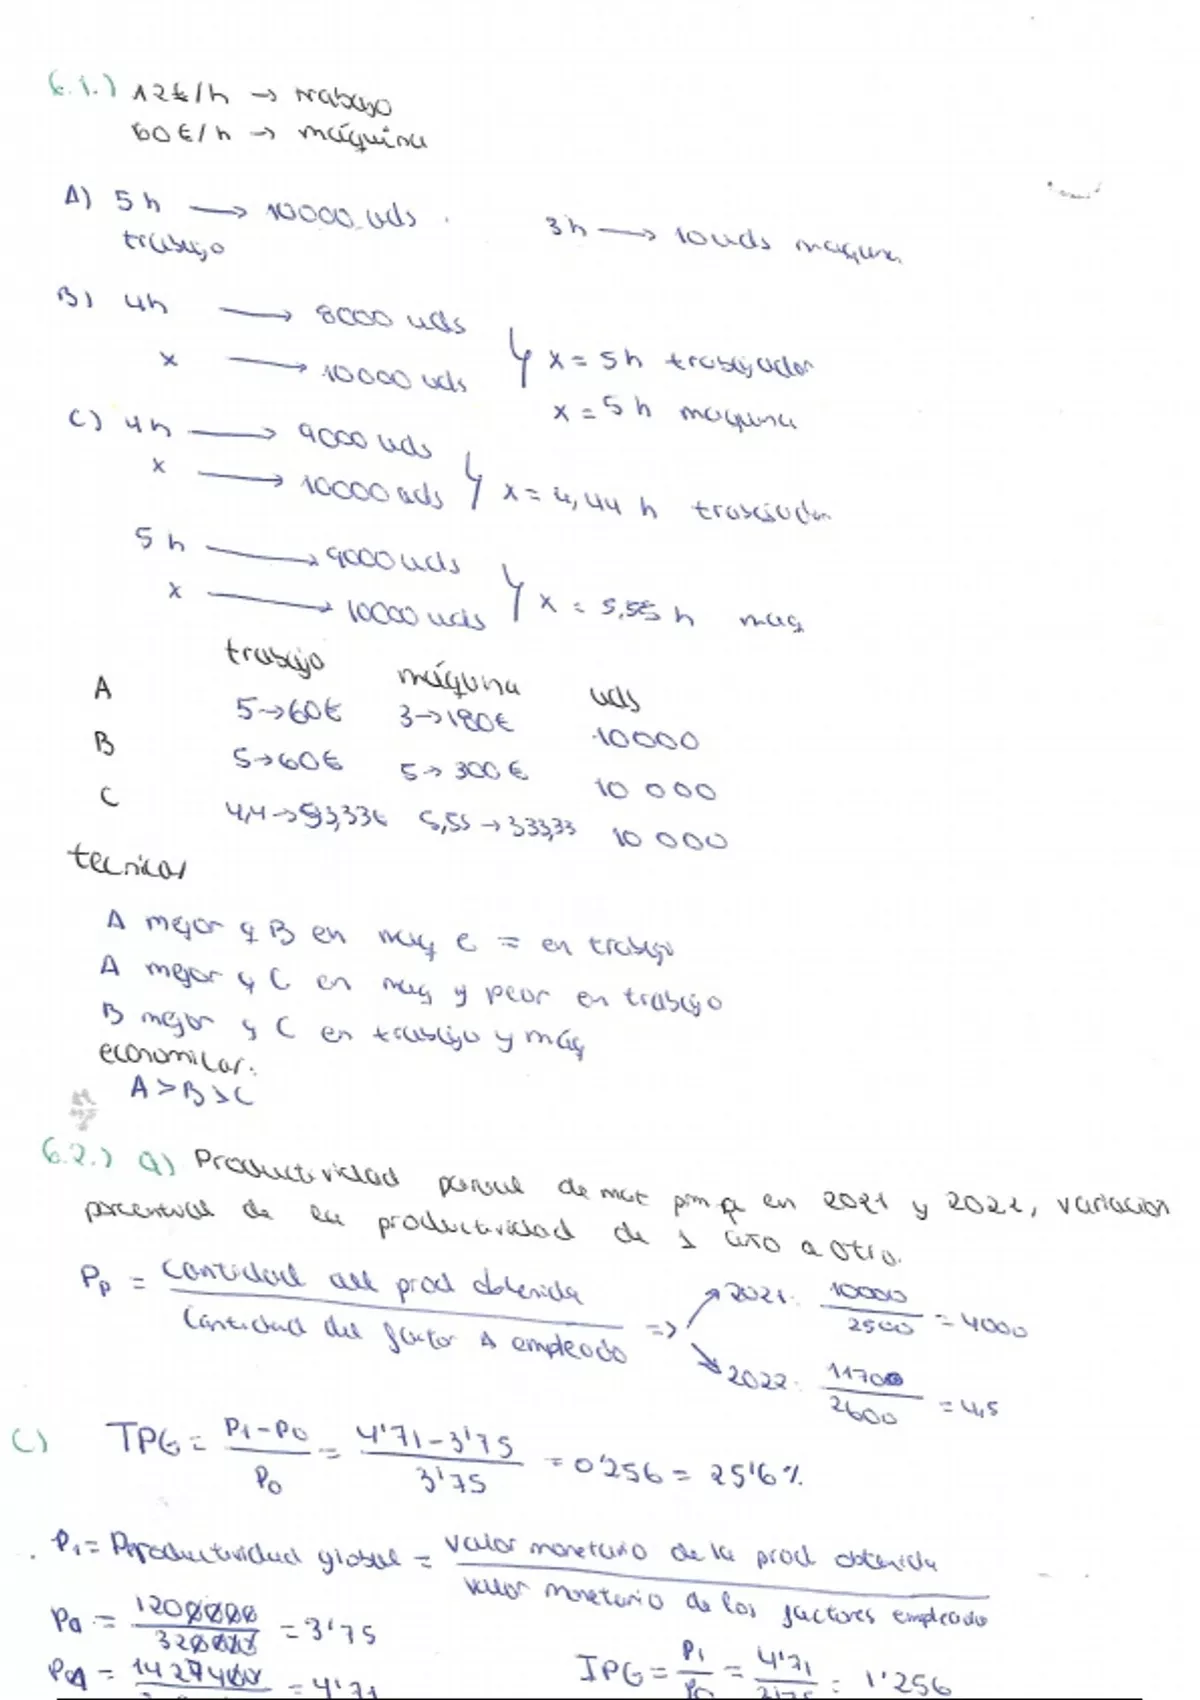 6.1.) 12€/h → trabajo
60€/h → máquina
A) 5h → 10000 uds. 3h → 10 uds maquina
trabajo
B) 4h → 8000 uds
x → 10000 uds } x = 5h trabajador
x = 5h maquina
C) 4h → 9000 uds
x → 10000 uds } x = 4,44 h trabajador
5h → 9000 uds
x → 10000 uds } x = 5,55 h maq
trabajo máquina uds
A 5→60€ 3→180€ 10000
B 5→60€ 5→300€ 10 000
C 4,4→53,33€ 5,55→333,33 10 000
tecnicas
A mejor q B en maq e = en trabajo
A mejor q C en maq y peor en trabajo
B mejor q C en trabajo y máq
economicas:
A>B>C
6.2.) a) Productividad parcial de mat prim en 2021 y 2022, variacion
porcentual de la productividad de 1 año a otro.
Pp = Cantidad del prod obtenida / Cantidad del factor A empleado => 2021: 10000/2500 = 4000
2022: 11700/2600 = 4,5
C) TPG = P1-P0/P0 = 4'71-3'75/3'75 = 0'256 = 25'6%
P1 = Productividad global = valor monetario de la prod obtenida / valor monetario de los factores empleado
P0 = 1200000/320000 = 3'75
= 1427400 = 4'71
IPG = P1/P0 = 4'71/3'75 = 1'256